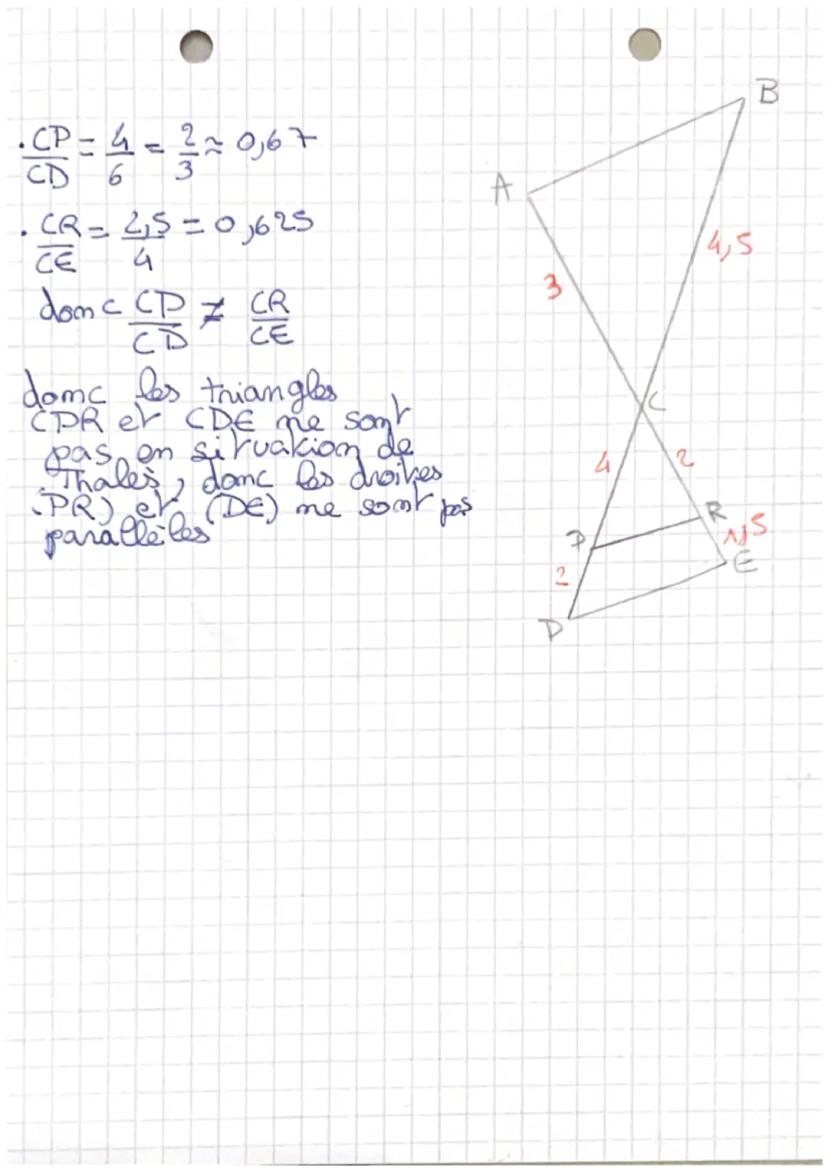 . CP/CD = 4/6 = 2/3 ≈ 0,67
. CR/CE = 2,5/4 = 0,625
donc CP/CD ≠ CR/CE
donc les triangles
CPR et CDE ne sont
pas en situation de
Thalès, donc les droites
(PR) et (DE) ne sont pas
parallèles
B
A
4,5
3
C
4
2
R
P
1,5
E
2
D